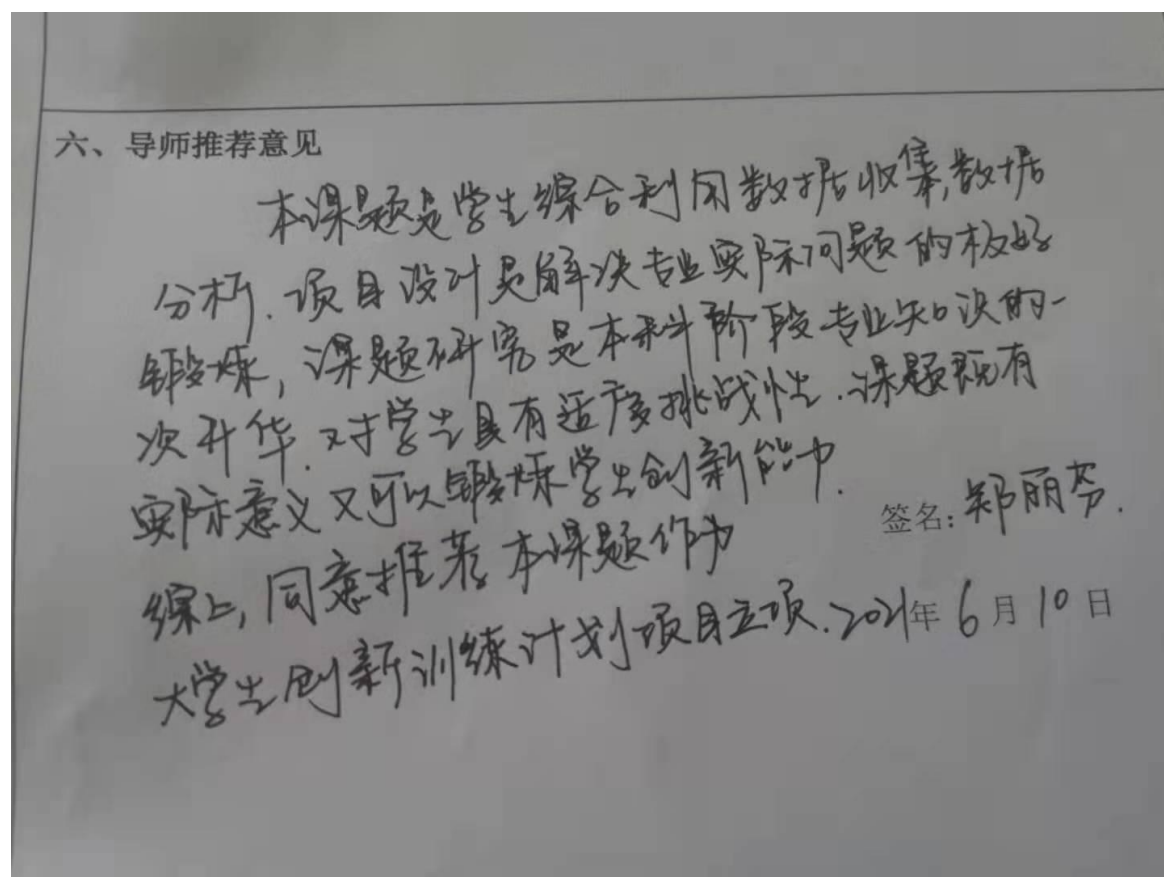 六、导师推荐意见
本课题是学生综合利用数据收集,数据
分析、项目设计是解决专业实际问题的极好
锻炼,课题研究是本科阶段专业知识的一
次升华.对学生具有适度挑战性.课题既有
实际意义又可以锻炼学生创新能力.
签名:郑丽芬.
综上,同意推荐本课题作为
大学生创新训练计划项目立项.2021年6月10日